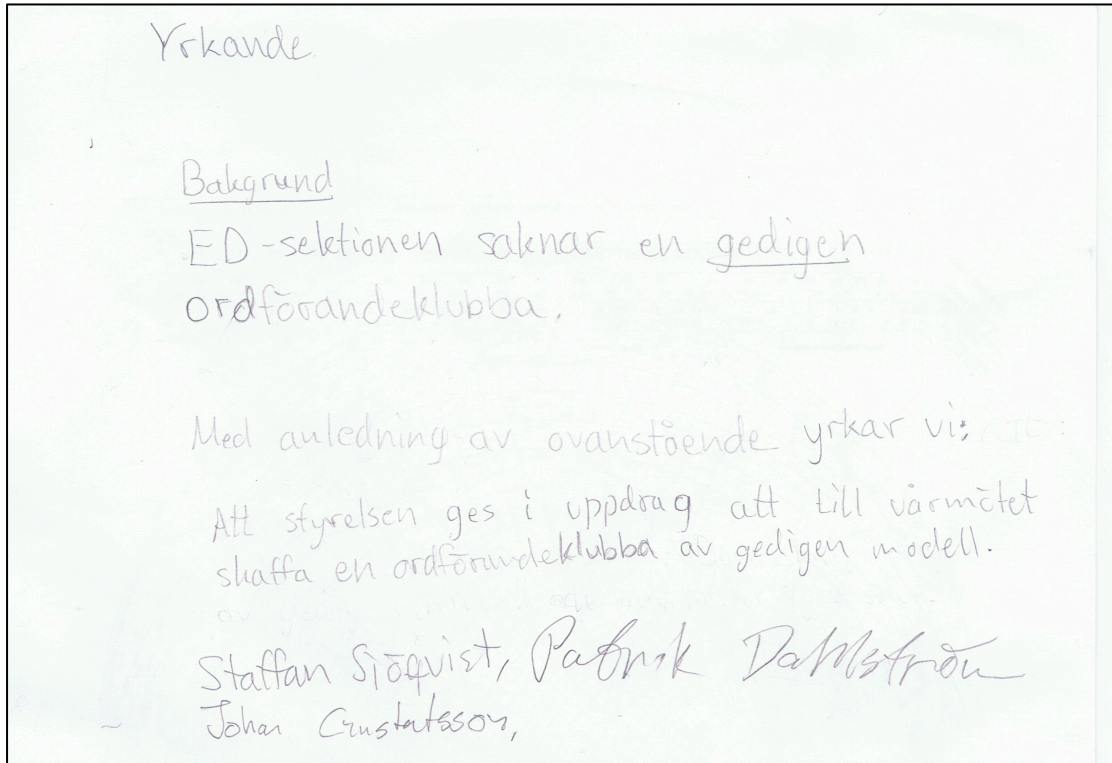 Yrkande
Bakgrund
ED-sektionen saknar en gedigen
ordförandeklubba.
Med anledning av ovanstående yrkar vi:
Att styrelsen ges i uppdrag att till vårmötet
skaffa en ordförandeklubba av gedigen modell.
Staffan Sjöqvist, Patrik Dahlström
Johan Gustafsson,